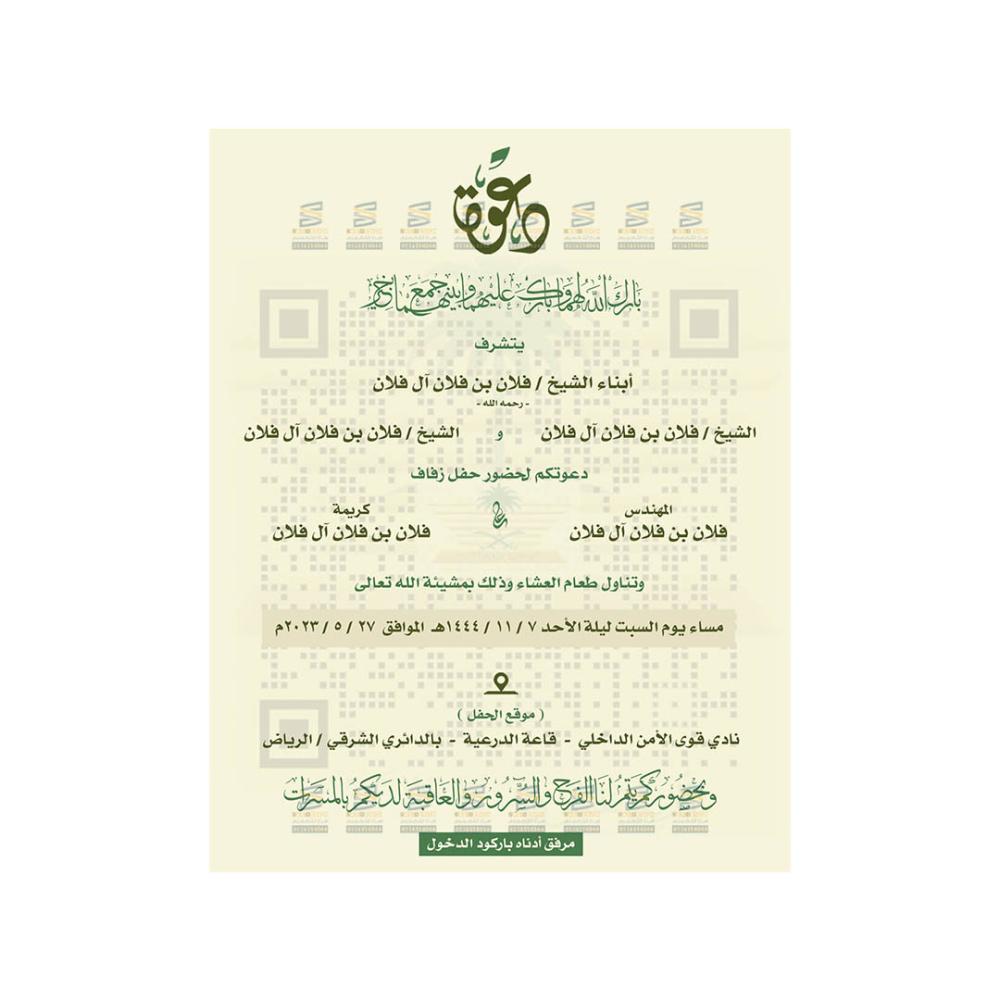 دعوة
بارك الله لهما وبارك عليهما وجمع بينهما في خير
يتشرف
أبناء الشيخ / فلان بن فلان آل فلان
- رحمه الله -
الشيخ / فلان بن فلان آل فلان و الشيخ / فلان بن فلان آل فلان
دعوتكم لحضور حفل زفاف
المهندس كريمة
فلان بن فلان آل فلان على فلان بن فلان آل فلان
وتناول طعام العشاء وذلك بمشيئة الله تعالى
مساء يوم السبت ليلة الأحد ٧ / ١١ / ١٤٤٤هـ الموافق ٢٧ / ٥ / ٢٠٢٣م
( موقع الحفل )
نادي قوى الأمن الداخلي - قاعة الدرعية - بالدائري الشرقي / الرياض
وبحضوركم يتم لنا الفرح والسرور والعاقبة لديكم بالمسرات
مرفق أدناه باركود الدخول